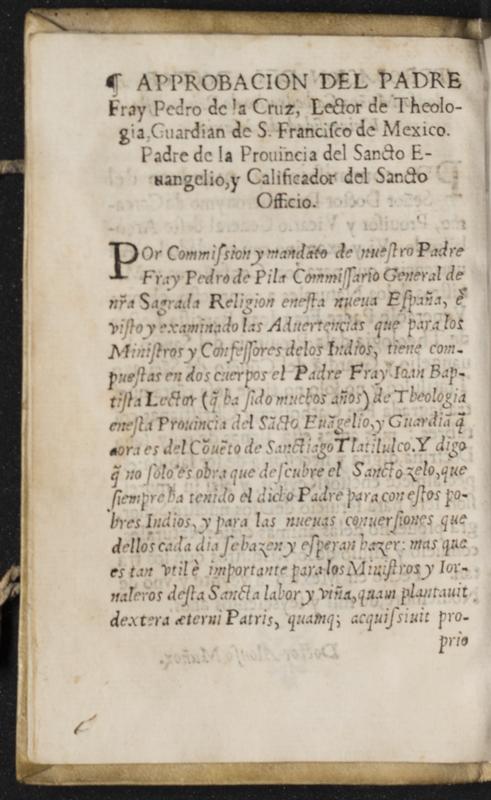 ¶ APPROBACION DEL PADRE
Fray Pedro de la Cruz, Lector de Theolo-
gia, Guardian de S. Francisco de Mexico.
Padre de la Prouincia del Sancto E-
uangelio, y Calificador del Sancto
Officio.
POr Commission y mandato de nuestro Padre
Fray Pedro de Pila Commissario General de
nr̃a Sagrada Religion enesta nueua España, è
visto y examinado las Aduertencias que para los
Ministros y Confessores delos Indios, tiene com-
puestas en dos cuerpos el Padre Fray Ioan Bap-
tista Lector (q̃ ha sido muchos años) de Theologia
enesta Prouincia del Sãcto Euãgelio, y Guardiã q̃
aora es del Cõuẽto de Sanctiago Tlatilulco. Y digo
q̃ no solo es obra que descubre el Sancto zelo, que
siempre ha tenido el dicho Padre para con estos po-
bres Indios, y para las nueuas conuersiones que
dellos cada dia se hazen y esperan hazer: mas que
es tan vtil è importante para los Ministros y Ior-
naleros desta Sancta labor y viña, quam plantauit
dextera æterni Patris, quamq; acquissiuit pro-
prio